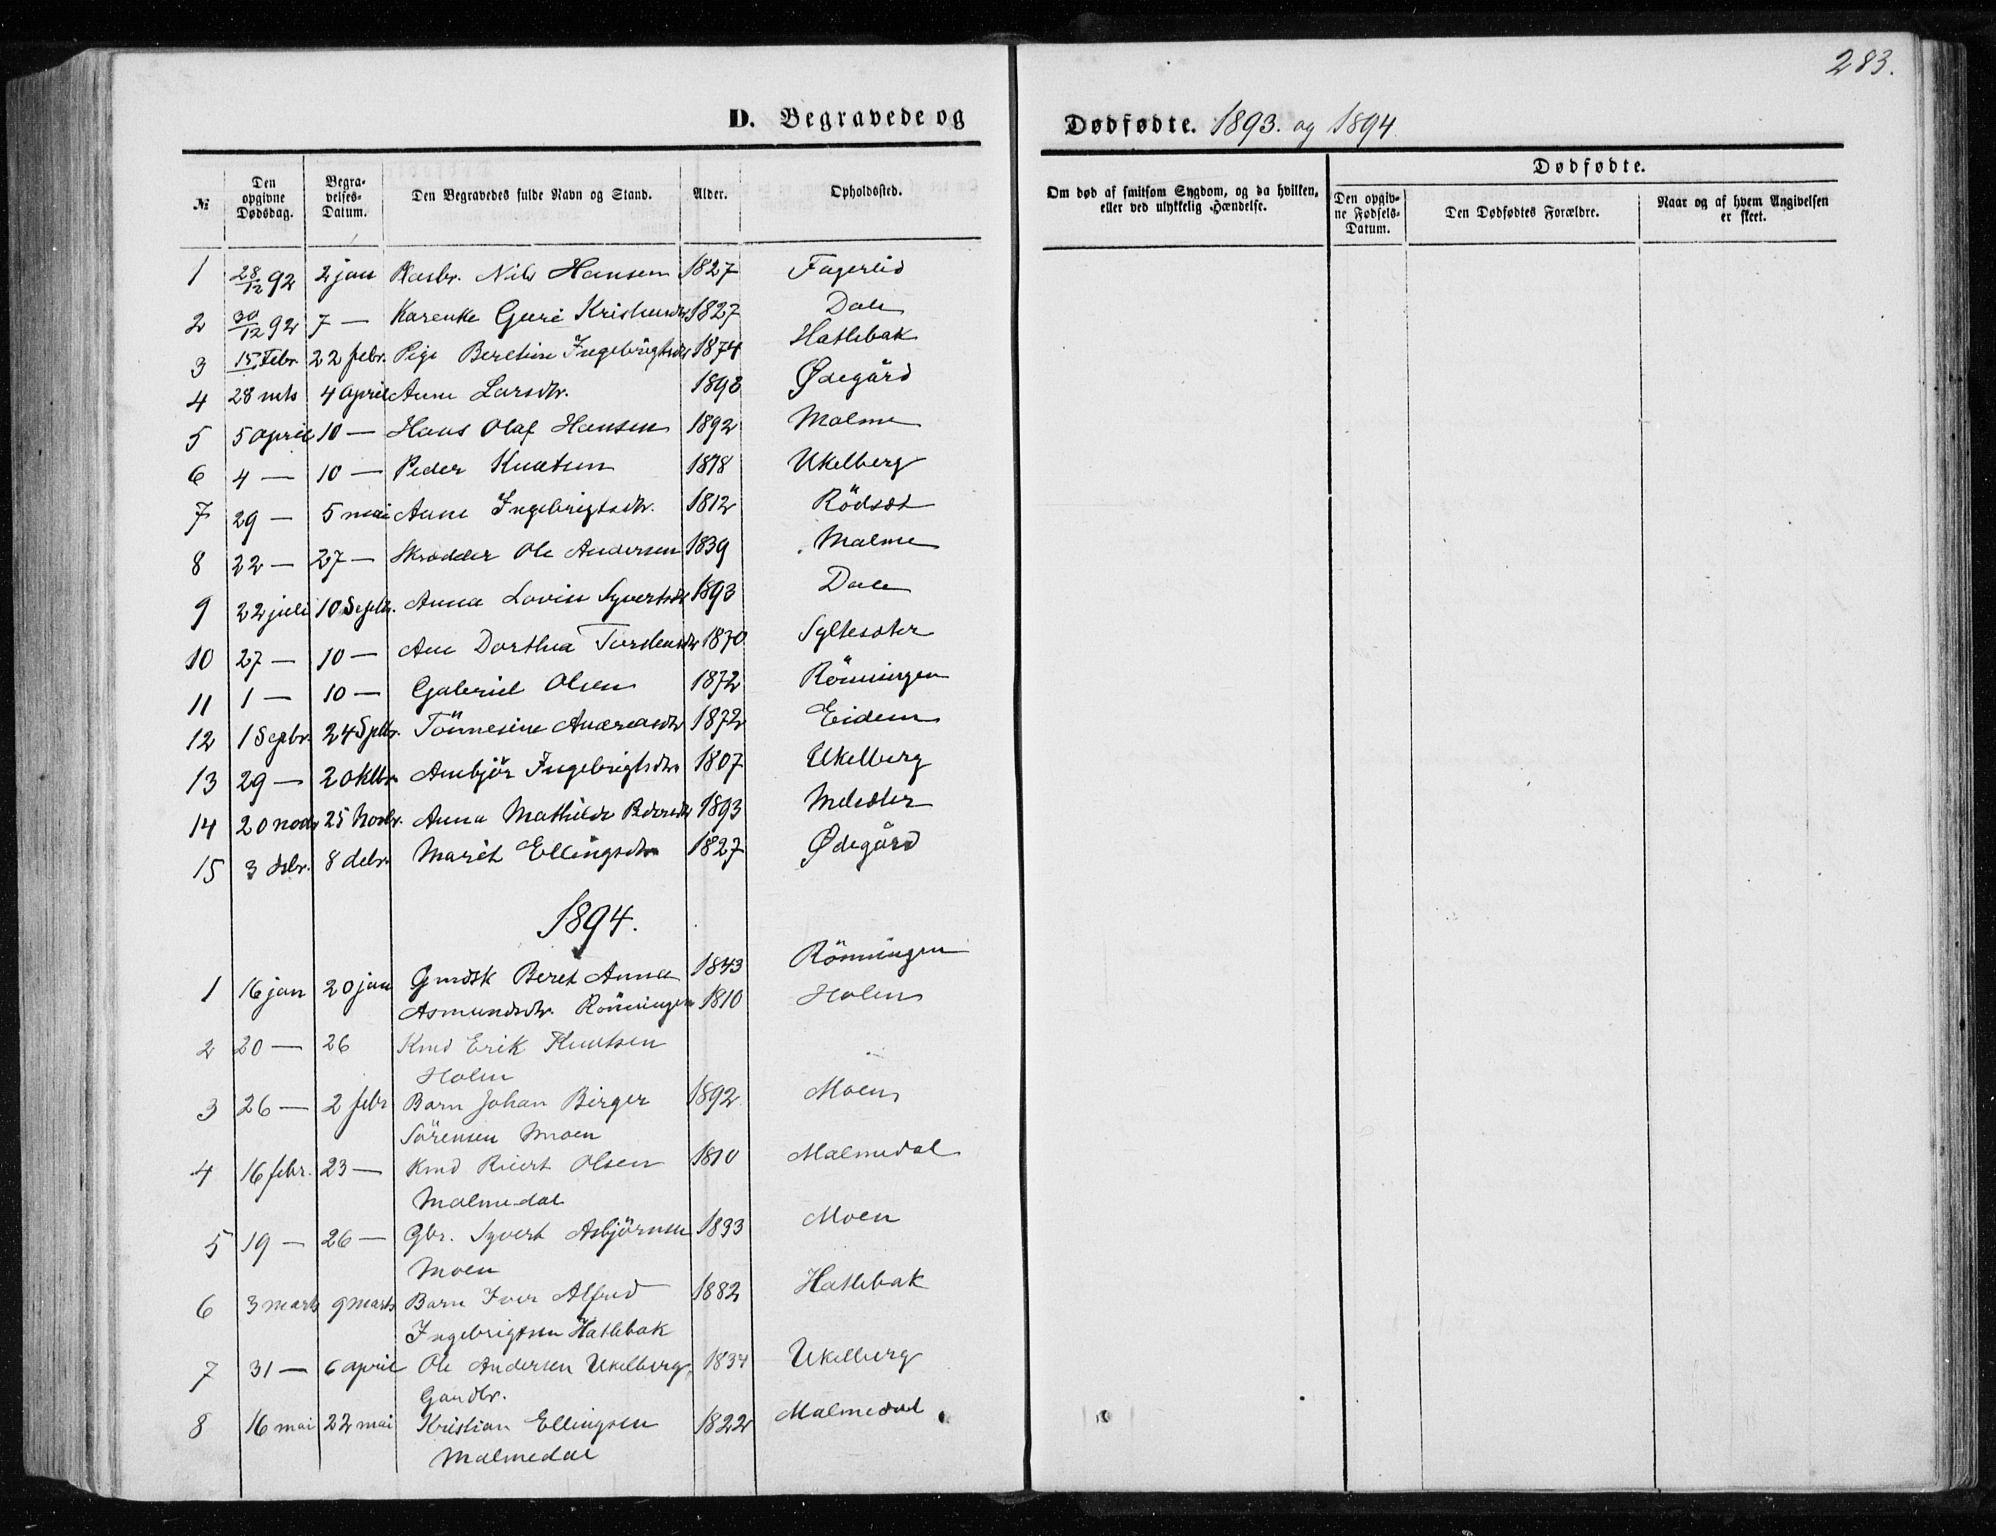 283.
D. Begravede og Dødfødte. 1893. og 1894.
№ | Den opgivne Dødsdag. | Begravelses-Datum. | Den Begravedes fulde Navn og Stand. | Alder. | Opholdssted. | Om død af smitsom Sygdom, og da hvilken, eller ved ulykkelig Hændelse. | Dødfødte. | Den opgivne Fødsels-Datum. | Den Dødfødtes Forældre. | Naar og af hvem Angivelsen er skeet.
1 28/12 92 2 jan Nils Hansen 1827 Fagerlid
2 30/12 92 7 — Guri 1827 Dale
3 15 Febr. 22 febr. Pige Beretine Ingebrigtsdtr 1874 Hatlebak
4 28 mts 4 april Anne Larsdtr. Ødegård
5 5 april 10 — Hans Olaf Hansen 1892 Malme
6 4 — 10 — Peder Knutsen 1878 Ukelberg
7 29 — 5 mai Anne Ingebrigtsdtr. 1812 Rödsæt
8 22 — 27 — Skrædder Ole Andersen 1839 Malme
9 22 juli 10 Septbr. Anna Lovise Syvertsdtr 1893 Dale
10 27 — 10 — Ane Dorthea Torstensdtr 1870 Syltesæter
11 1 — 10 — Gabriel Olsen 1872 Rönningen
12 1 Sepbr. 24 Sptbr. Tönnesine Andreasdtr 1872 Eidem
13 29 — 2 oktbr Anbjör Ingebrigtsdtr 1807 Ukelberg
14 20 novbr 25 Novbr. Anna Mathilde Pedersdtr 1893 Melsæter
15 3 dsbr. 8 debr. Marit Ellingsdtr 1827 Ødegård
1894.
1 16 jan 20 jan Gmdsk Beret Anna 1843 Rönningen
Asmundsdtr. Rönningen 1810 Holen
2 20 — 26 Kmd Erik Knutsen
Holen
3 26 — 2 febr Barn Johan Birger 1892 Moen
Sörensen Moen
4 16 febr. 23 — Kmd Olsen 1810 Malmedal
Malmedal
5 19 — 26 — Gbr. Syvert Asbjörnsen 1833 Moen
Moen
6 3 marts 9 marts Barn Iver Alfred 1882 Hatlebak
Ingebrigtsen Hatlebak
7 31 — 6 april Ole Andersen Ukelberg, 1834 Ukelberg
Gaardbr.
8 16 mai 22 mai Kristian Ellingsen 1822 Malmedal
Malmedal